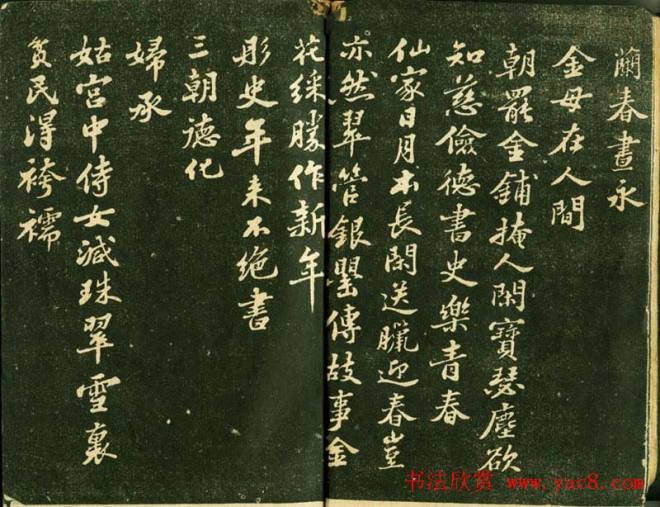 蘭春晝永
金母在人間
朝罷金鋪掩人閑寶瑟塵欲
知慈儉德書史樂青春
仙家日月本長閑送臘迎春豈
亦然翠管銀罌傳故事金
花綵勝作新年
彤史年来不絶書
三朝德化
婦承
姑宮中侍女減珠翠雪裏
貧民得袴襦
书法欣赏 www.yac8.com